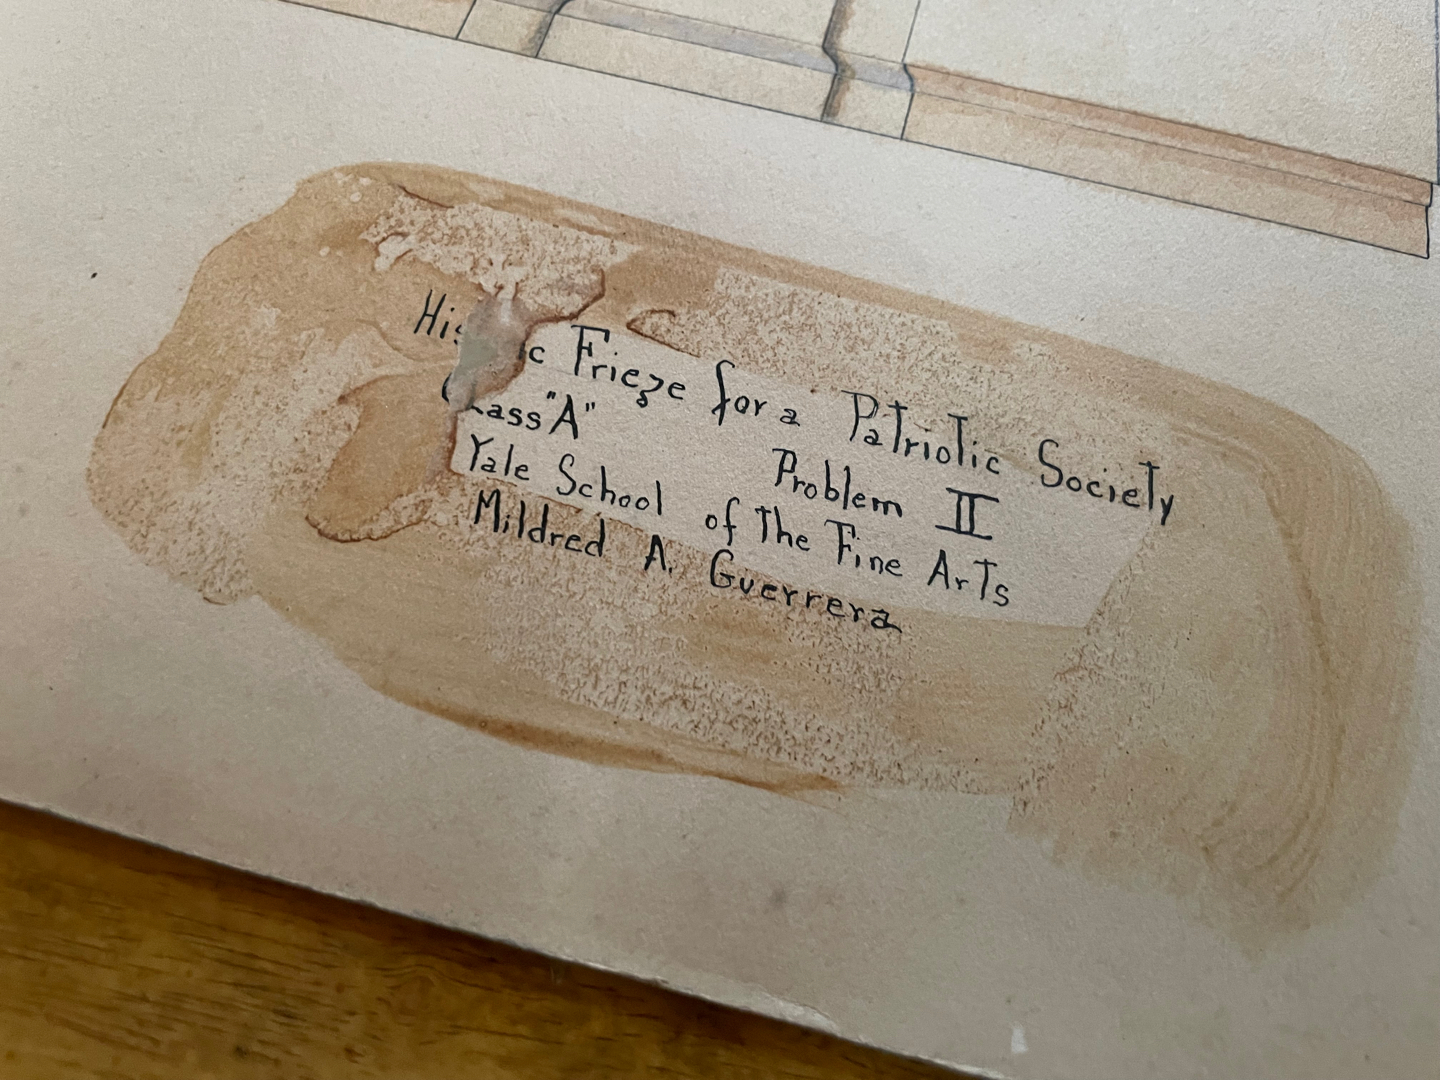 Frieze for a Patriotic Society
Class "A" Problem II
Yale School of the Fine Arts
Mildred A. Guerrera